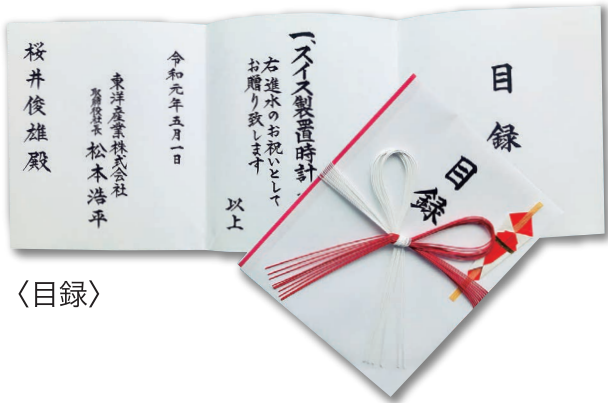 目録
一、スイス製置時計
右進水のお祝いとして
お贈り致します
以上
令和元年五月一日
東洋産業株式会社
取締役社長 松本浩平
桜井俊雄殿
目録
〈目録〉